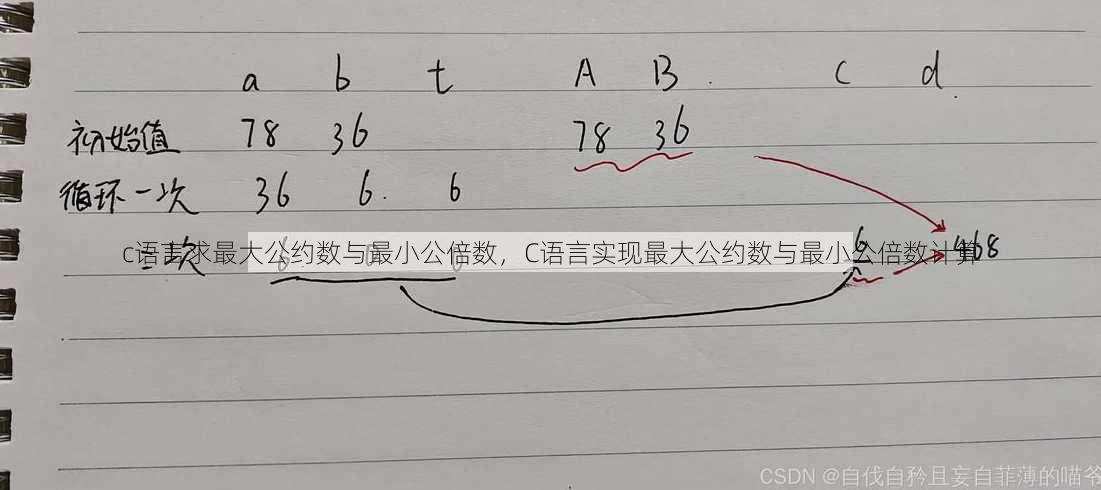 a b t A B. c d.
初始值 78 36 78 36
循环一次 36 6. 6
二次 6 0 6 468
c语言求最大公约数与最小公倍数，C语言实现最大公约数与最小公倍数计算
CSDN @自伐自矜且妄自菲薄的喵爷